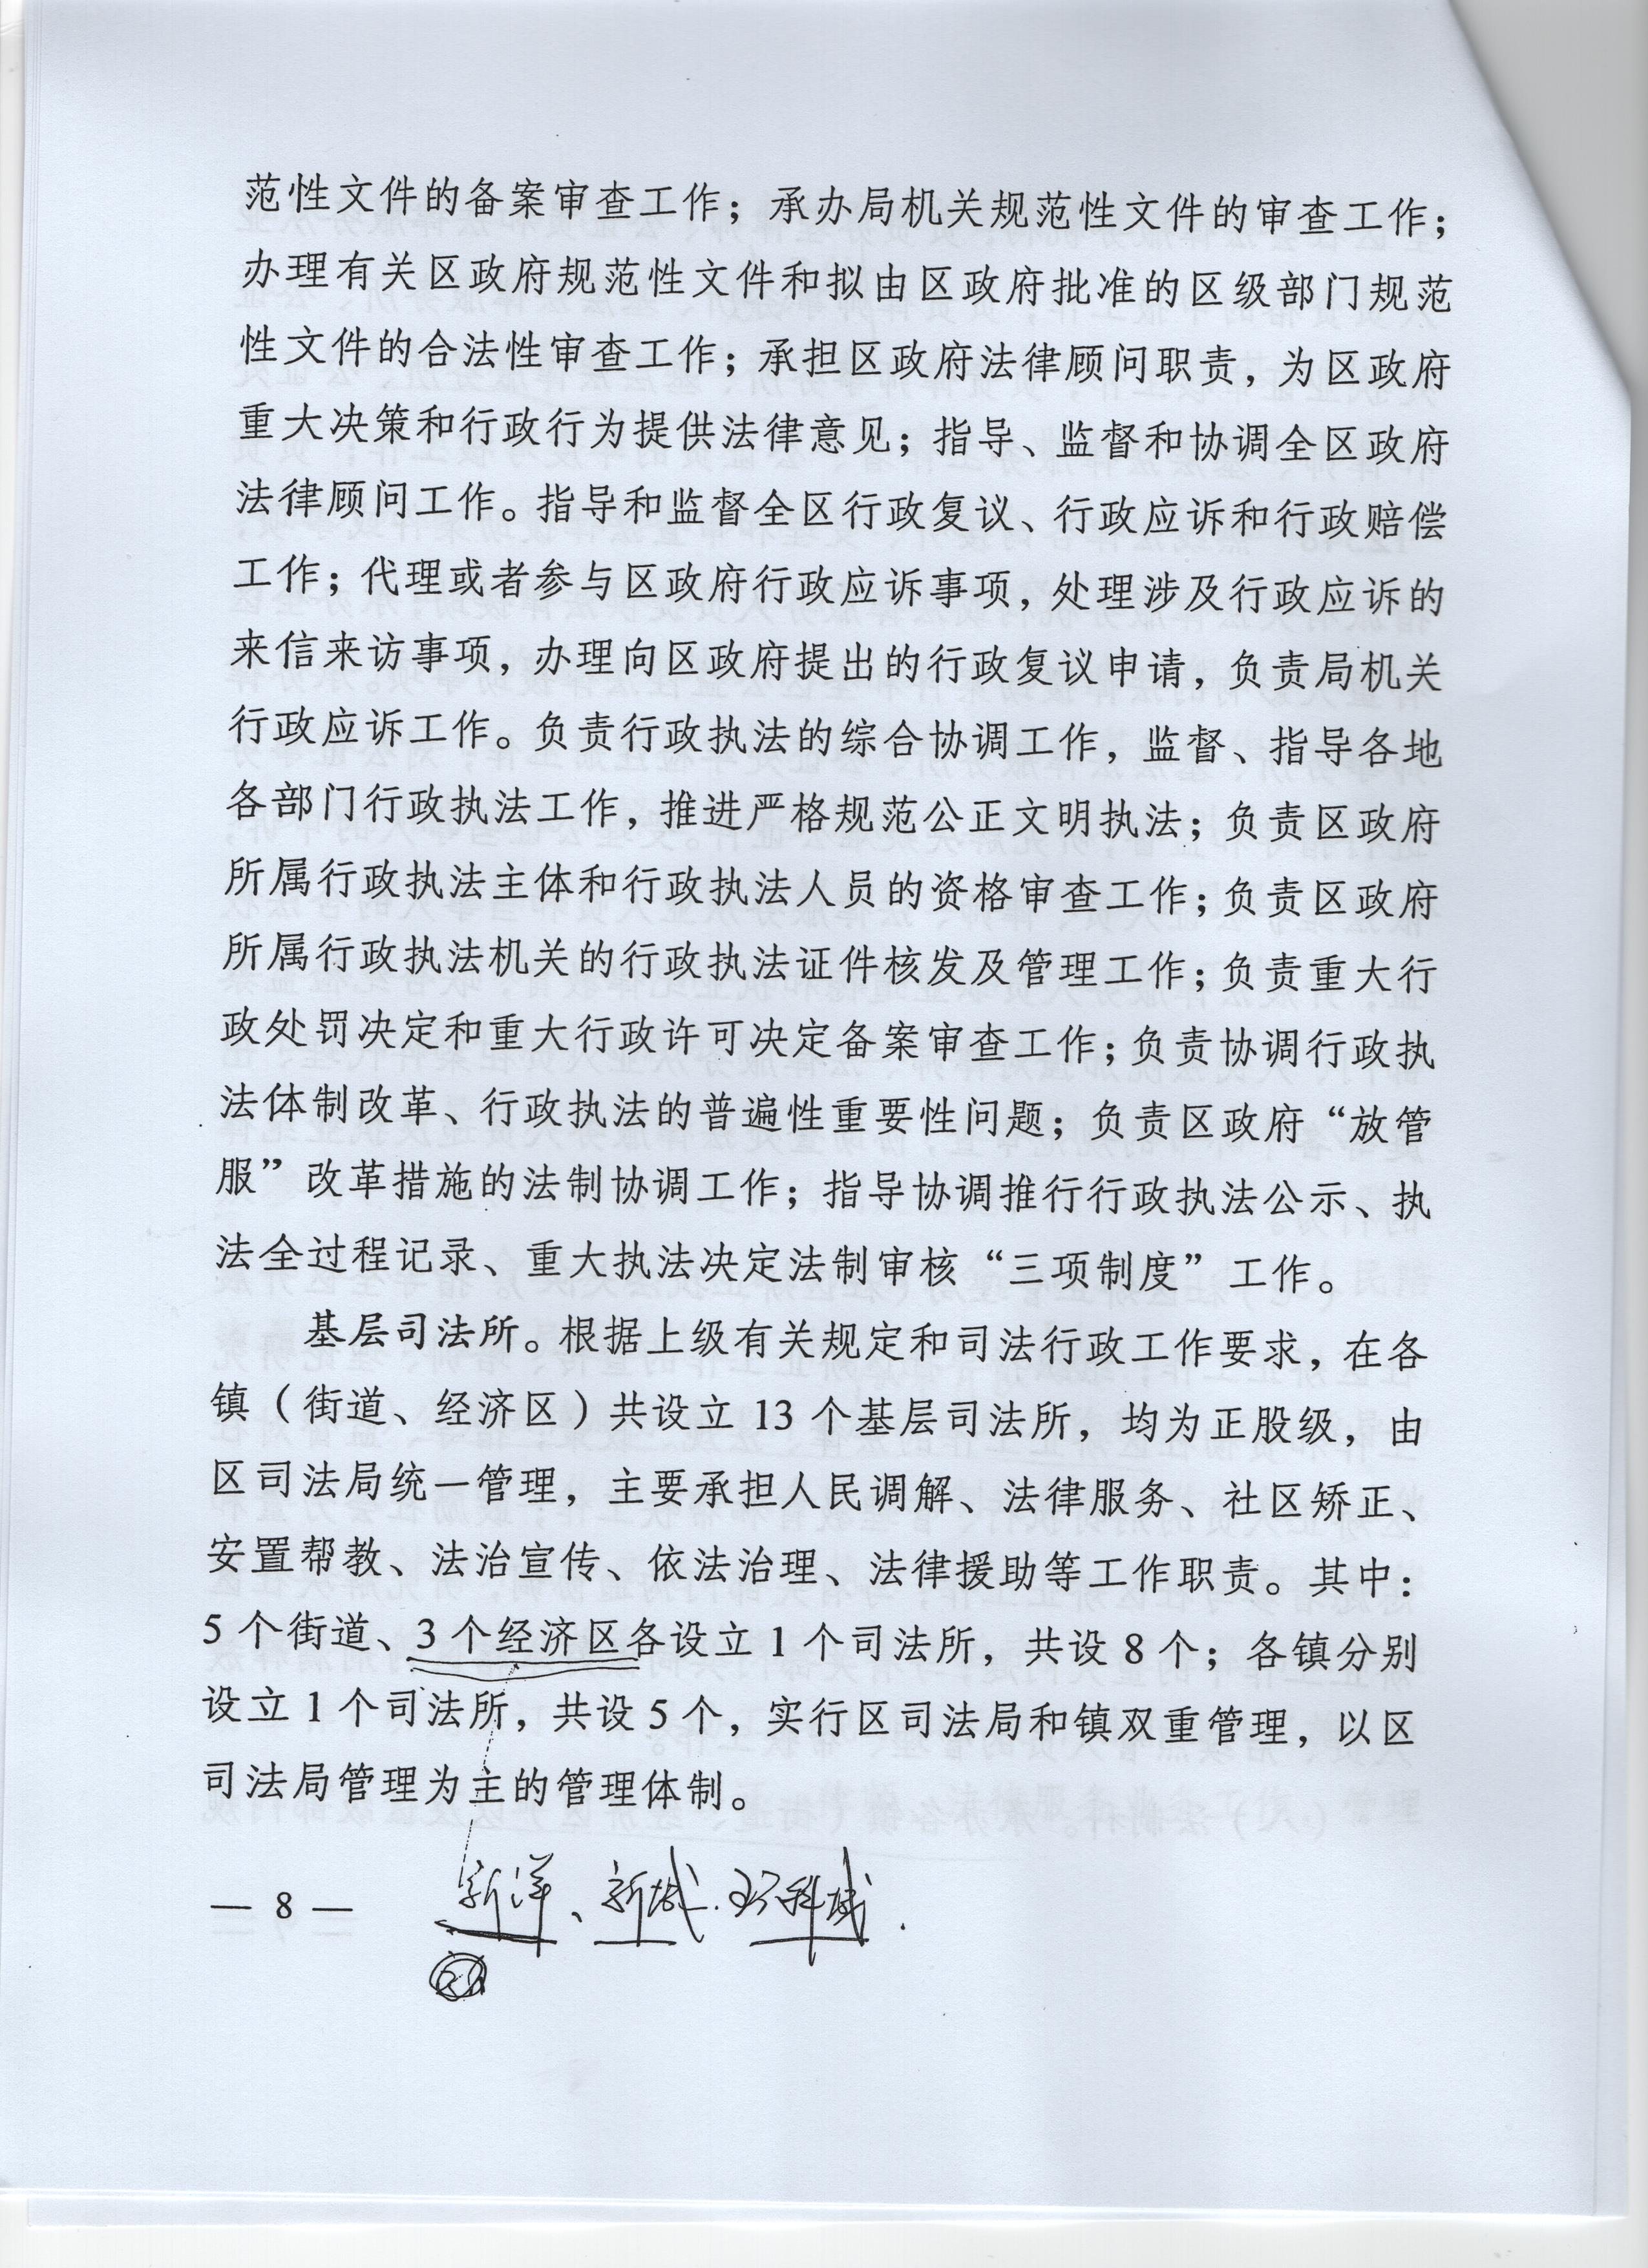 范性文件的备案审查工作；承办局机关规范性文件的审查工作；
办理有关区政府规范性文件和拟由区政府批准的区级部门规范
性文件的合法性审查工作；承担区政府法律顾问职责，为区政府
重大决策和行政行为提供法律意见；指导、监督和协调全区政府
法律顾问工作。指导和监督全区行政复议、行政应诉和行政赔偿
工作；代理或者参与区政府行政应诉事项，处理涉及行政应诉的
来信来访事项，办理向区政府提出的行政复议申请，负责局机关
行政应诉工作。负责行政执法的综合协调工作，监督、指导各地
各部门行政执法工作，推进严格规范公正文明执法；负责区政府
所属行政执法主体和行政执法人员的资格审查工作；负责区政府
所属行政执法机关的行政执法证件核发及管理工作；负责重大行
政处罚决定和重大行政许可决定备案审查工作；负责协调行政执
法体制改革、行政执法的普遍性重要性问题；负责区政府“放管
服”改革措施的法制协调工作；指导协调推行行政执法公示、执
法全过程记录、重大执法决定法制审核“三项制度”工作。
基层司法所。根据上级有关规定和司法行政工作要求，在各
镇（街道、经济区）共设立 13 个基层司法所，均为正股级，由
区司法局统一管理，主要承担人民调解、法律服务、社区矫正、
安置帮教、法治宣传、依法治理、法律援助等工作职责。其中：
5 个街道、3 个经济区各设立 1 个司法所，共设 8 个；各镇分别
设立 1 个司法所，共设 5 个，实行区司法局和镇双重管理，以区
司法局管理为主的管理体制。
— 8 —
新洋、新城.环科城.